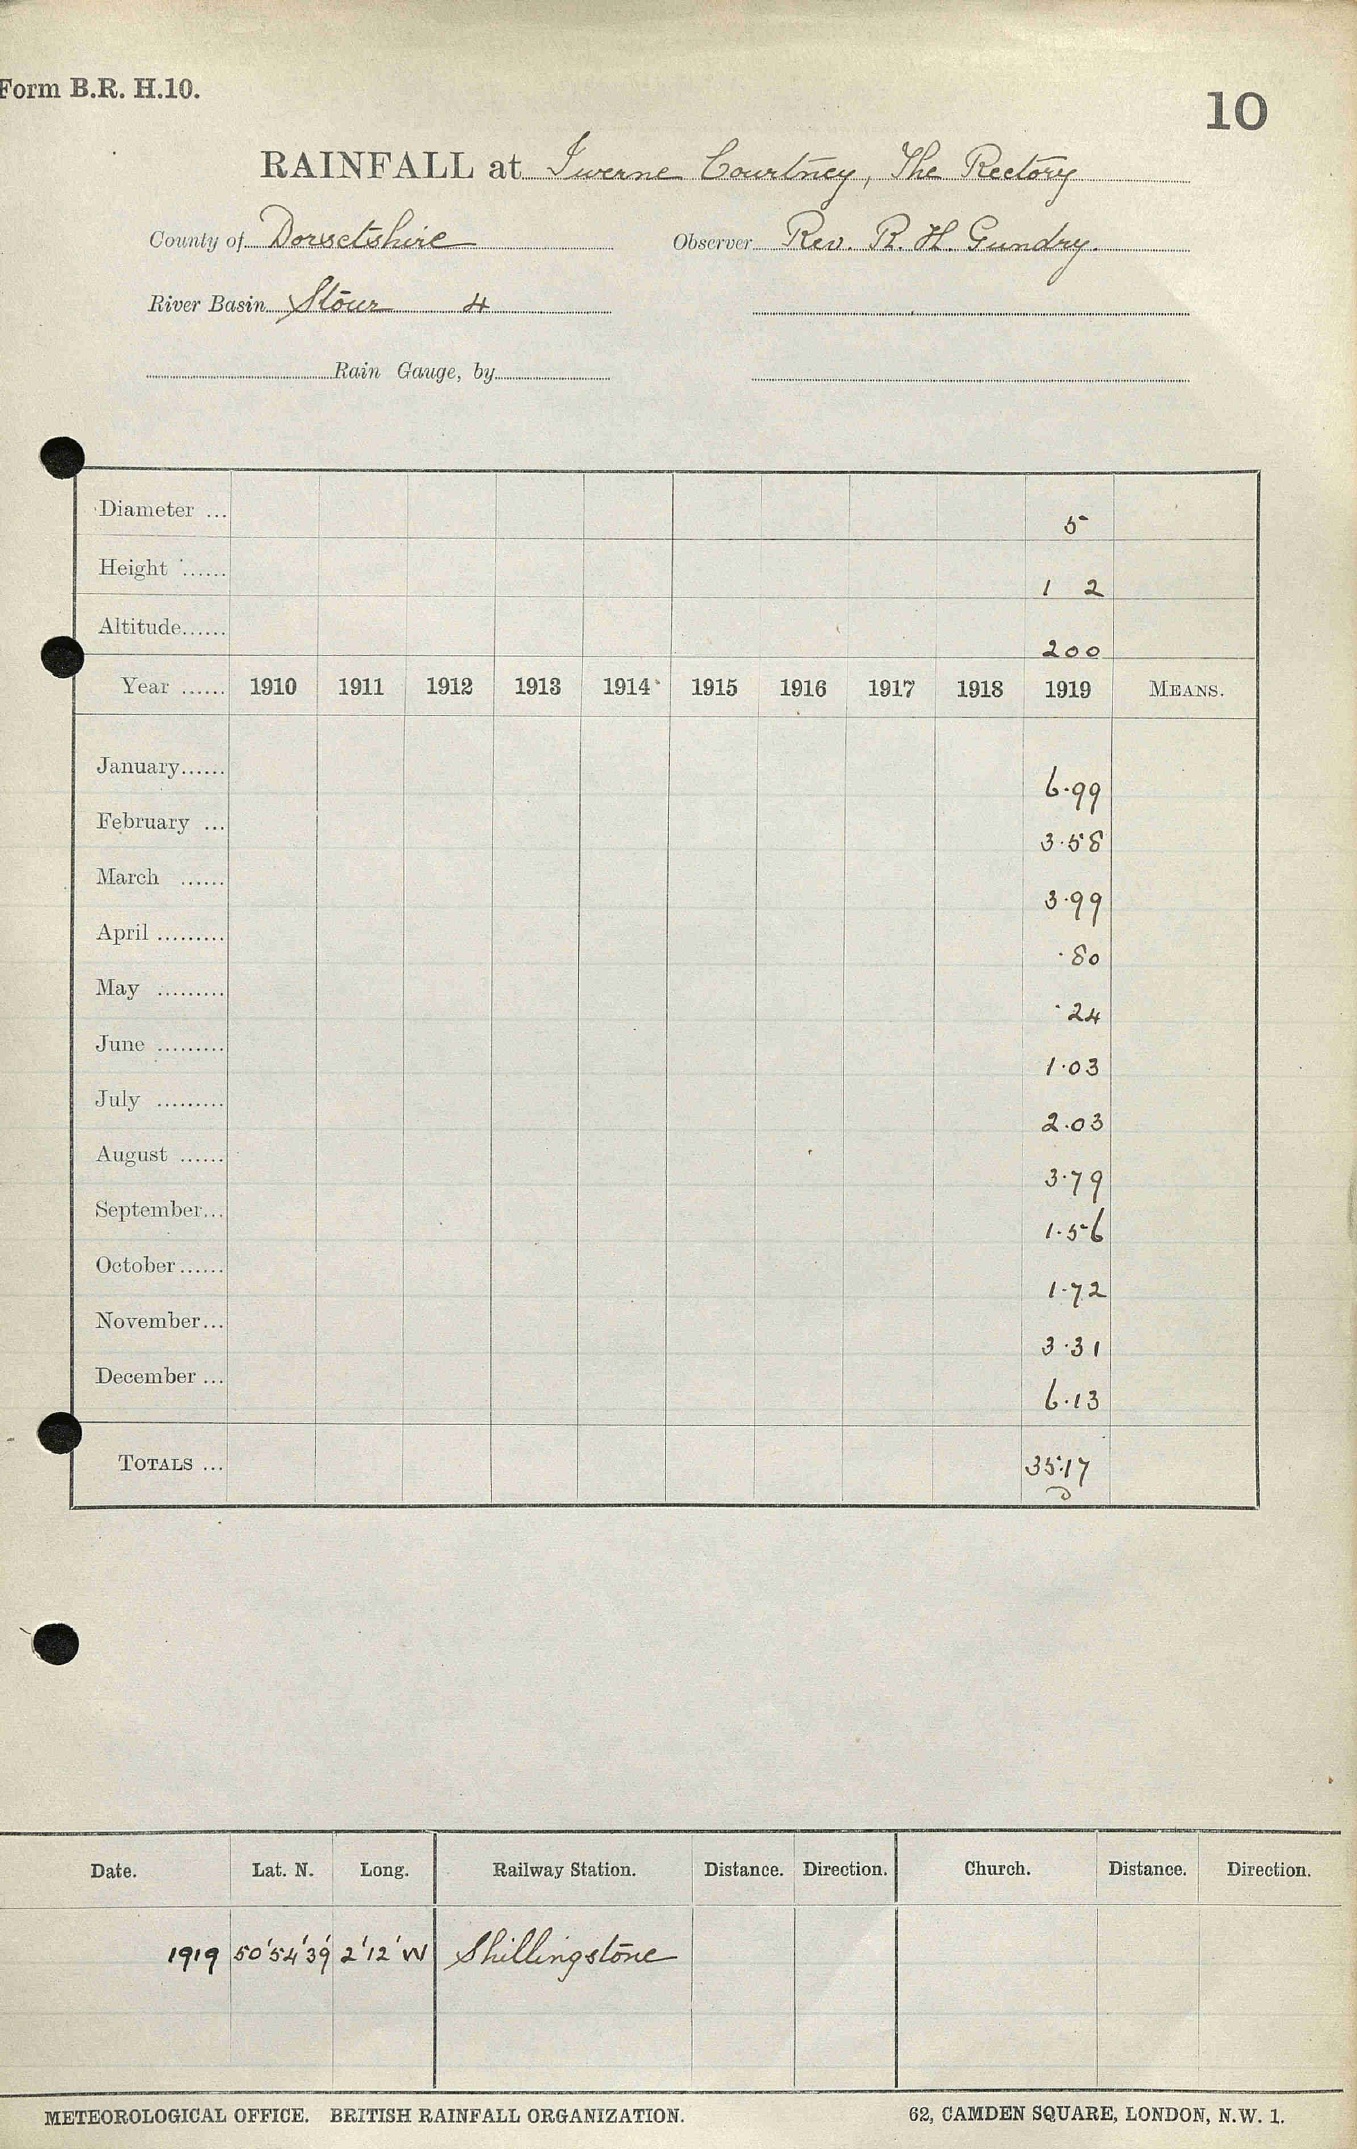 Form B.R. H.10.
10
RAINFALL at Iwerne Courtney, The Rectory
County of Dorsetshire Observer Rev. R. H. Gundry.
River Basin Stour 4
Rain Gauge, by
Diameter ... 5
Height ...... 1 2
Altitude...... 200
Year ...... 1910 1911 1912 1913 1914 1915 1916 1917 1918 1919 MEANS.
January...... 6.99
February ... 3.58
March ...... 3.99
April ......... .80
May ......... .24
June ......... 1.03
July ......... 2.03
August ...... 3.79
September... 1.56
October...... 1.72
November... 3.31
December ... 6.13
TOTALS ... 35.17
Date. Lat. N. Long. Railway Station. Distance. Direction. Church. Distance. Direction.
1919 50'54'39' 2'12'W Shillingstone
METEOROLOGICAL OFFICE. BRITISH RAINFALL ORGANIZATION. 62, CAMDEN SQUARE, LONDON, N.W. 1.